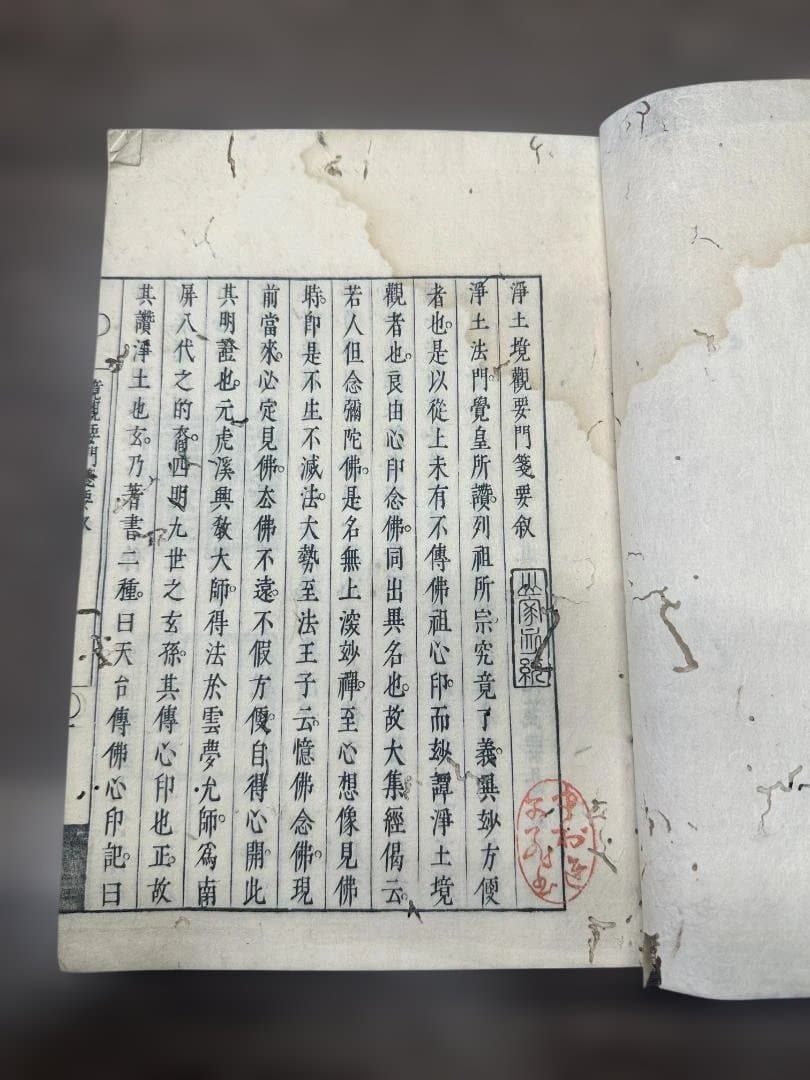 淨土境觀要門箋要叙
淨土法門。覺皇所讚。列祖所宗。究竟了義。異妙方便
者也。是以從上未有不傳佛祖心印。而妙譚淨土境
觀者也。良由心印念佛。同出異名也。故大集經偈云。
若人但念彌陀佛。是名無上深妙禪。至心想像見佛
時。卽是不生不滅法。大勢至法王子云。憶佛念佛。現
前當來。必定見佛。去佛不遠。不假方便。自得心開。此
其明證也。元虎溪興敎大師。得法於雲夢允師。爲南
屏八代之的裔。四明九世之玄孫。其傳心印也正。故
其讚淨土也玄。乃著書二種。曰天台傳佛心印記。曰
境觀要門箋要